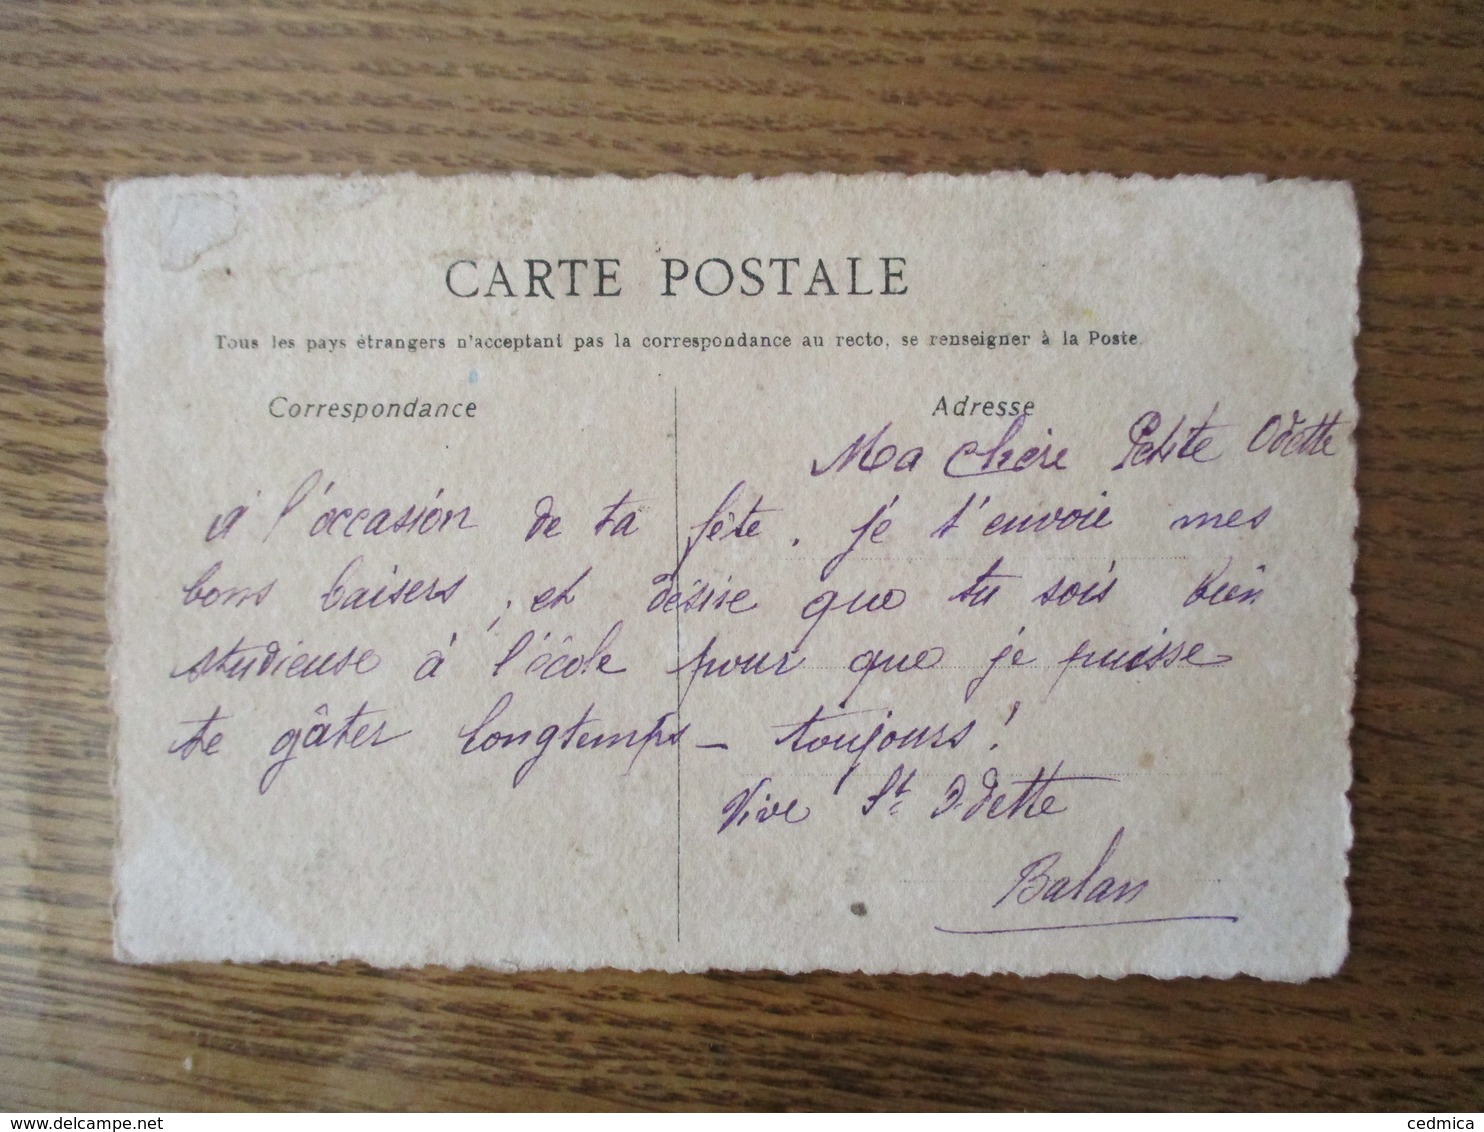 CARTE POSTALE
Tous les pays étrangers n'acceptant pas la correspondance au recto, se renseigner à la Poste.
Correspondance
Adresse
Ma chère Petite Odette
à l'occasion de ta fête, je t'envoie mes
bons baisers, et désire que tu sois bien
studieuse à l'école pour que je puisse
te gâter longtemps - toujours!
Vive St Odette
Balan
cedmica
delcampe.net